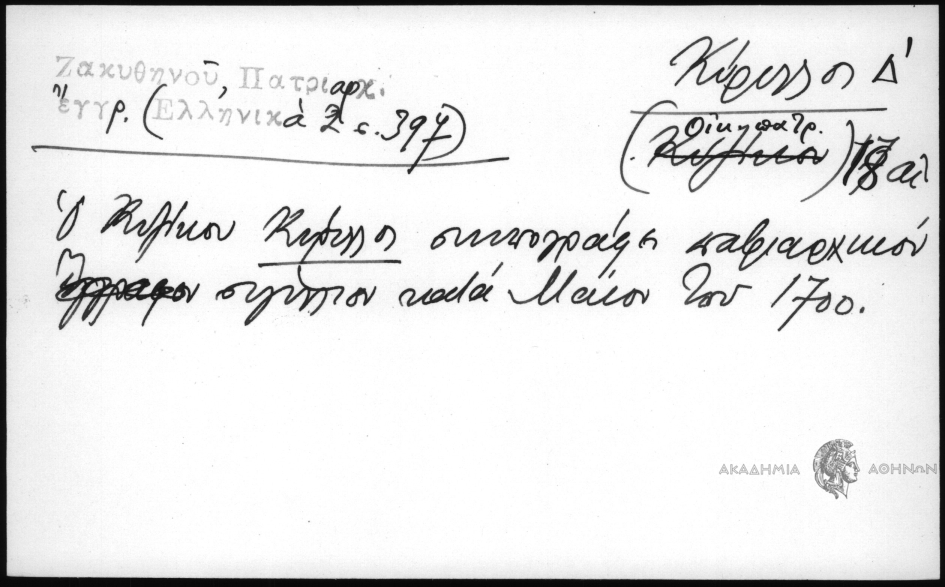 Ζακυθηνοῦ, Πατριαρχ.
ἔγγρ. (Ἑλληνικὰ 2 σ. 397)
Κύριλλος Δ'
(Κυζίκου Οἰκ. πατρ.) 17 αἰ
Ὁ Κυζίκου Κύριλλος συνυπογράφει πατριαρχικόν
ἔγγραφον σιγίλλιον κατά Μάϊον τοῦ 1700.
ΑΚΑΔΗΜΙΑ ΑΘΗΝΩΝ